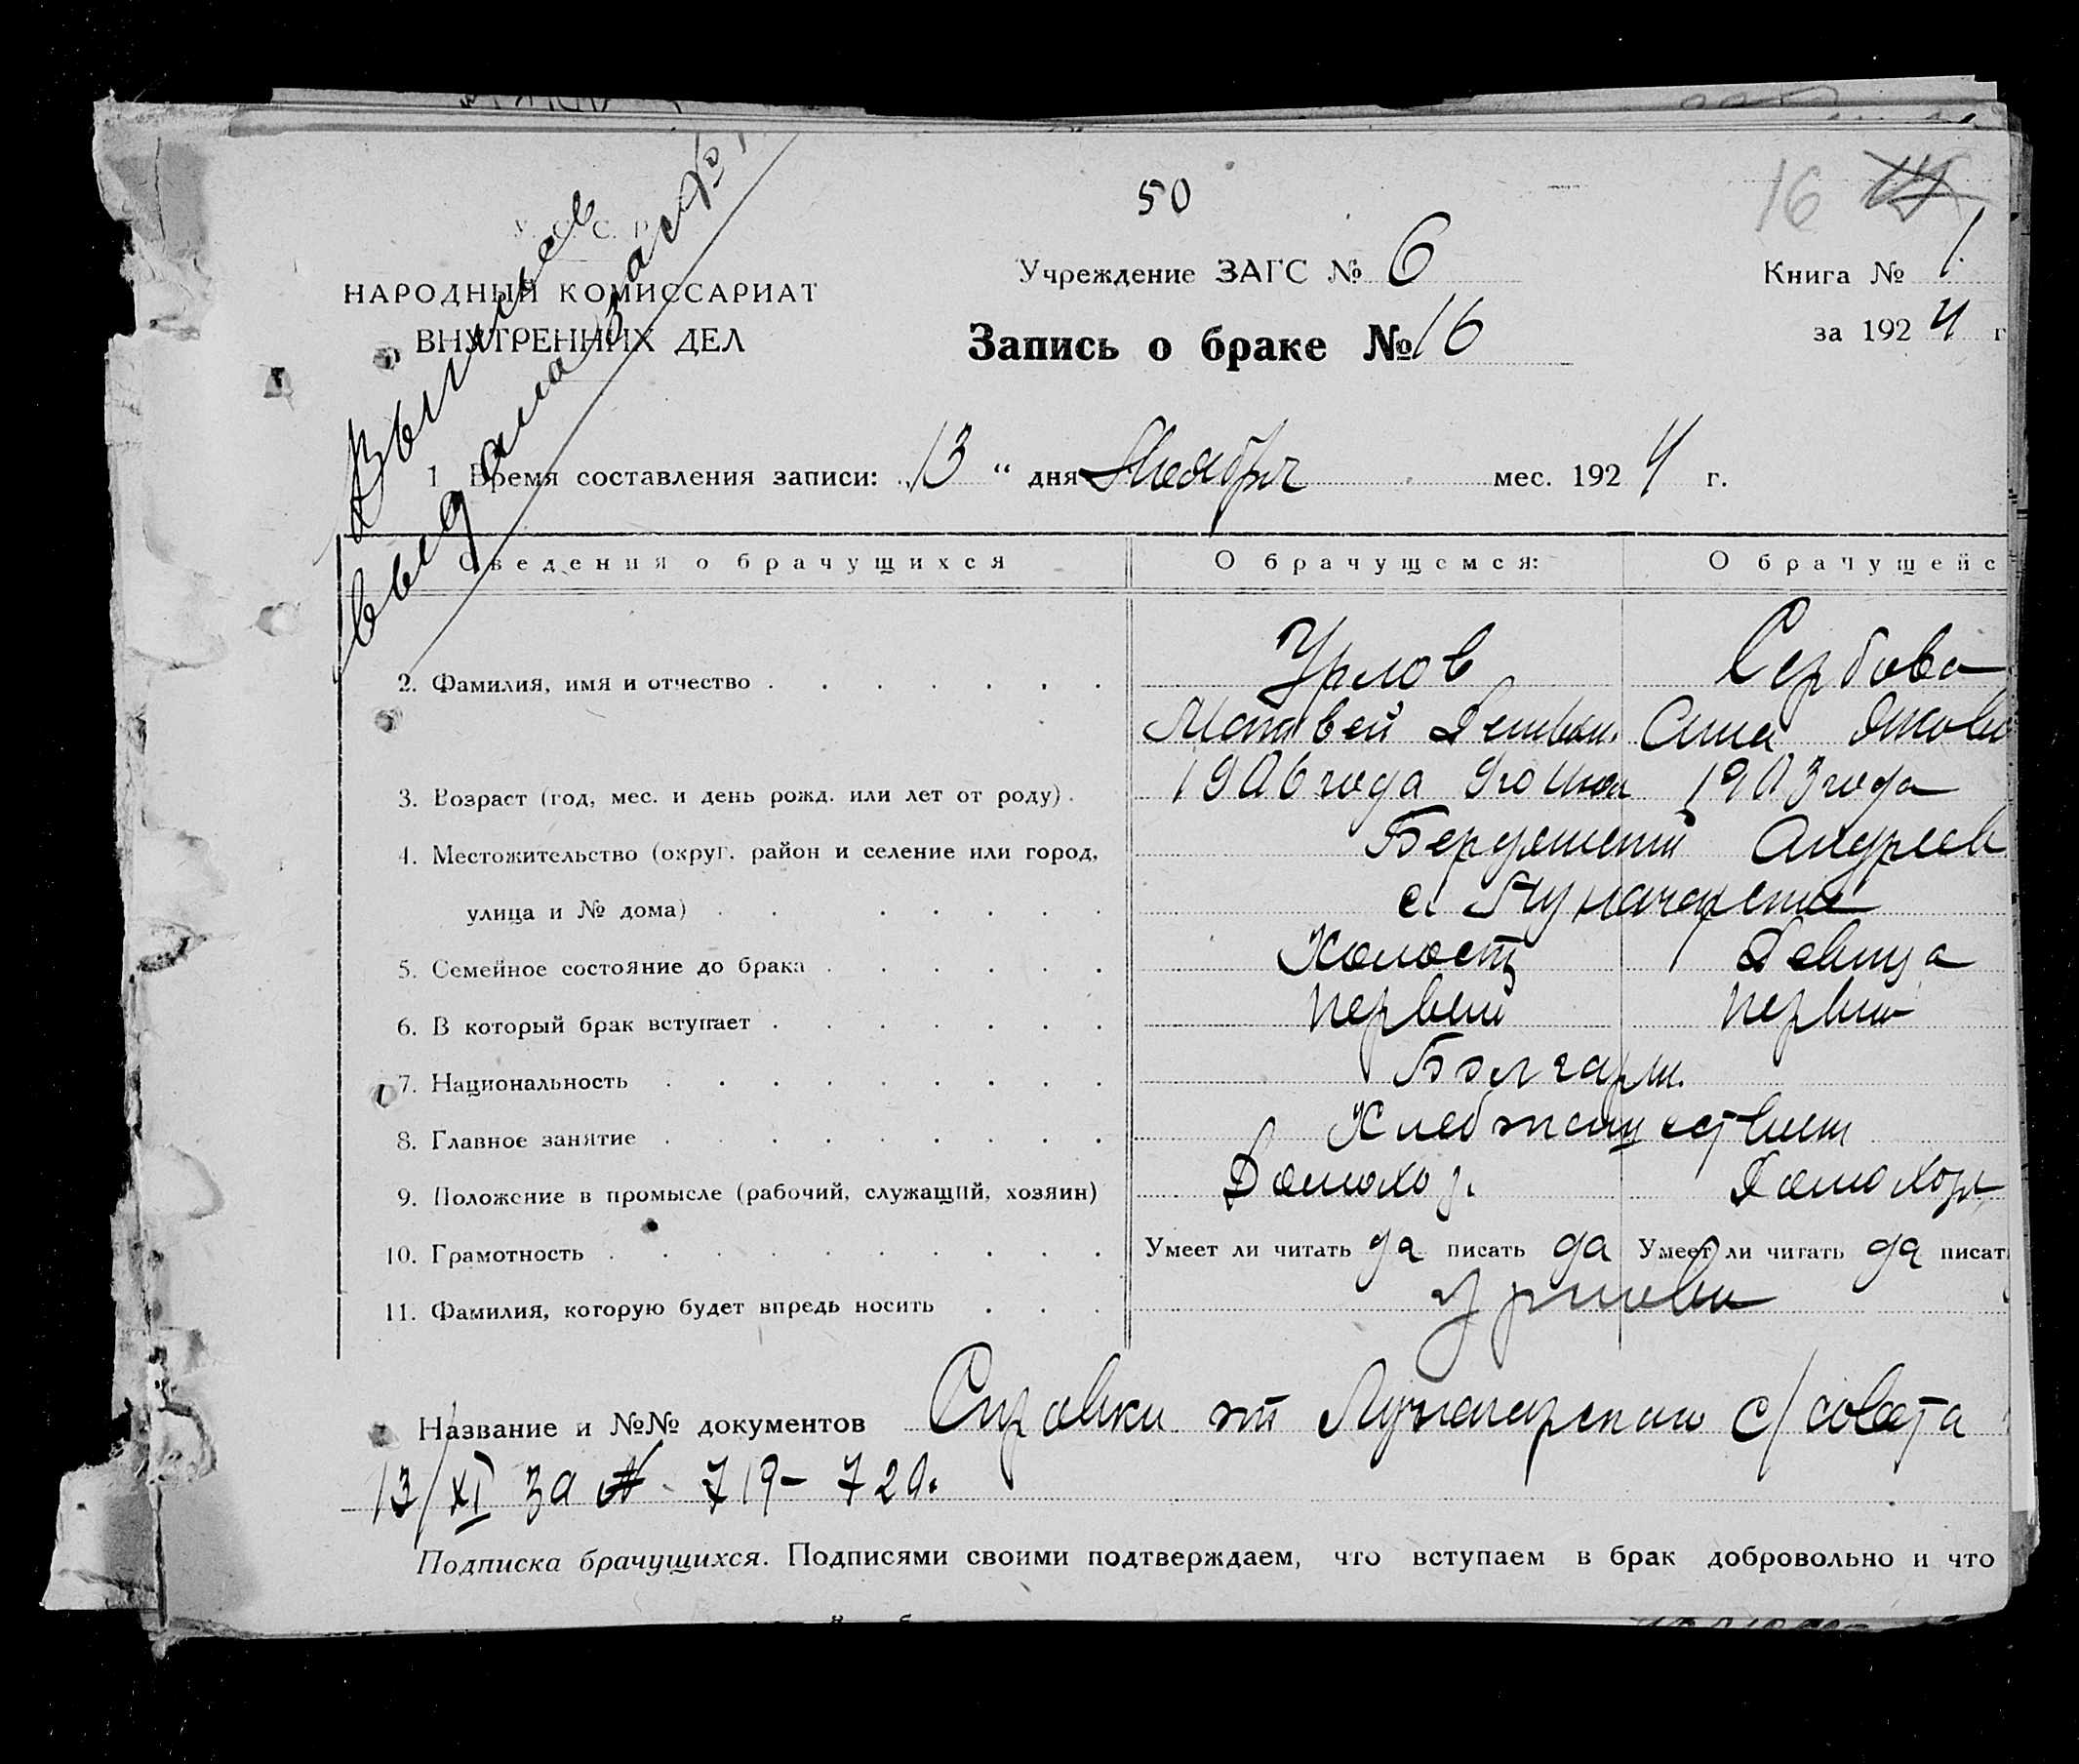 50
16
У. С. С. Р.
НАРОДНЫЙ КОМИССАРИАТ
ВНУТРЕННИХ ДЕЛ
Учреждение ЗАГС № 6
Книга № 1
Запись о браке № 16
за 1924 г
1 Время составления записи: 13 " дня Ноября мес. 1924 г.
Сведения о брачущихся О брачущемся: О брачущейс
2. Фамилия, имя и отчество Урлов Сербова
Матвей Анна
3. Возраст (год, мес. и день рожд. или лет от роду) 1906 года 1903 года
4. Местожительство (округ. район и селение или город, Андреев
улица и № дома) с.
5. Семейное состояние до брака Холост Девица
6. В который брак вступает первый первый
7. Национальность Болгары.
8. Главное занятие
9. Положение в промысле (рабочий, служащий, хозяин) Домохоз. Домохоз
10. Грамотность Умеет ли читать да писать да Умеет ли читать да писат
11. Фамилия, которую будет впредь носить
Название и №№ документов Справки от Луначарского с/совета
13/XI за № 719-720.
Подписка брачущихся. Подписями своими подтверждаем, что вступаем в брак добровольно и что